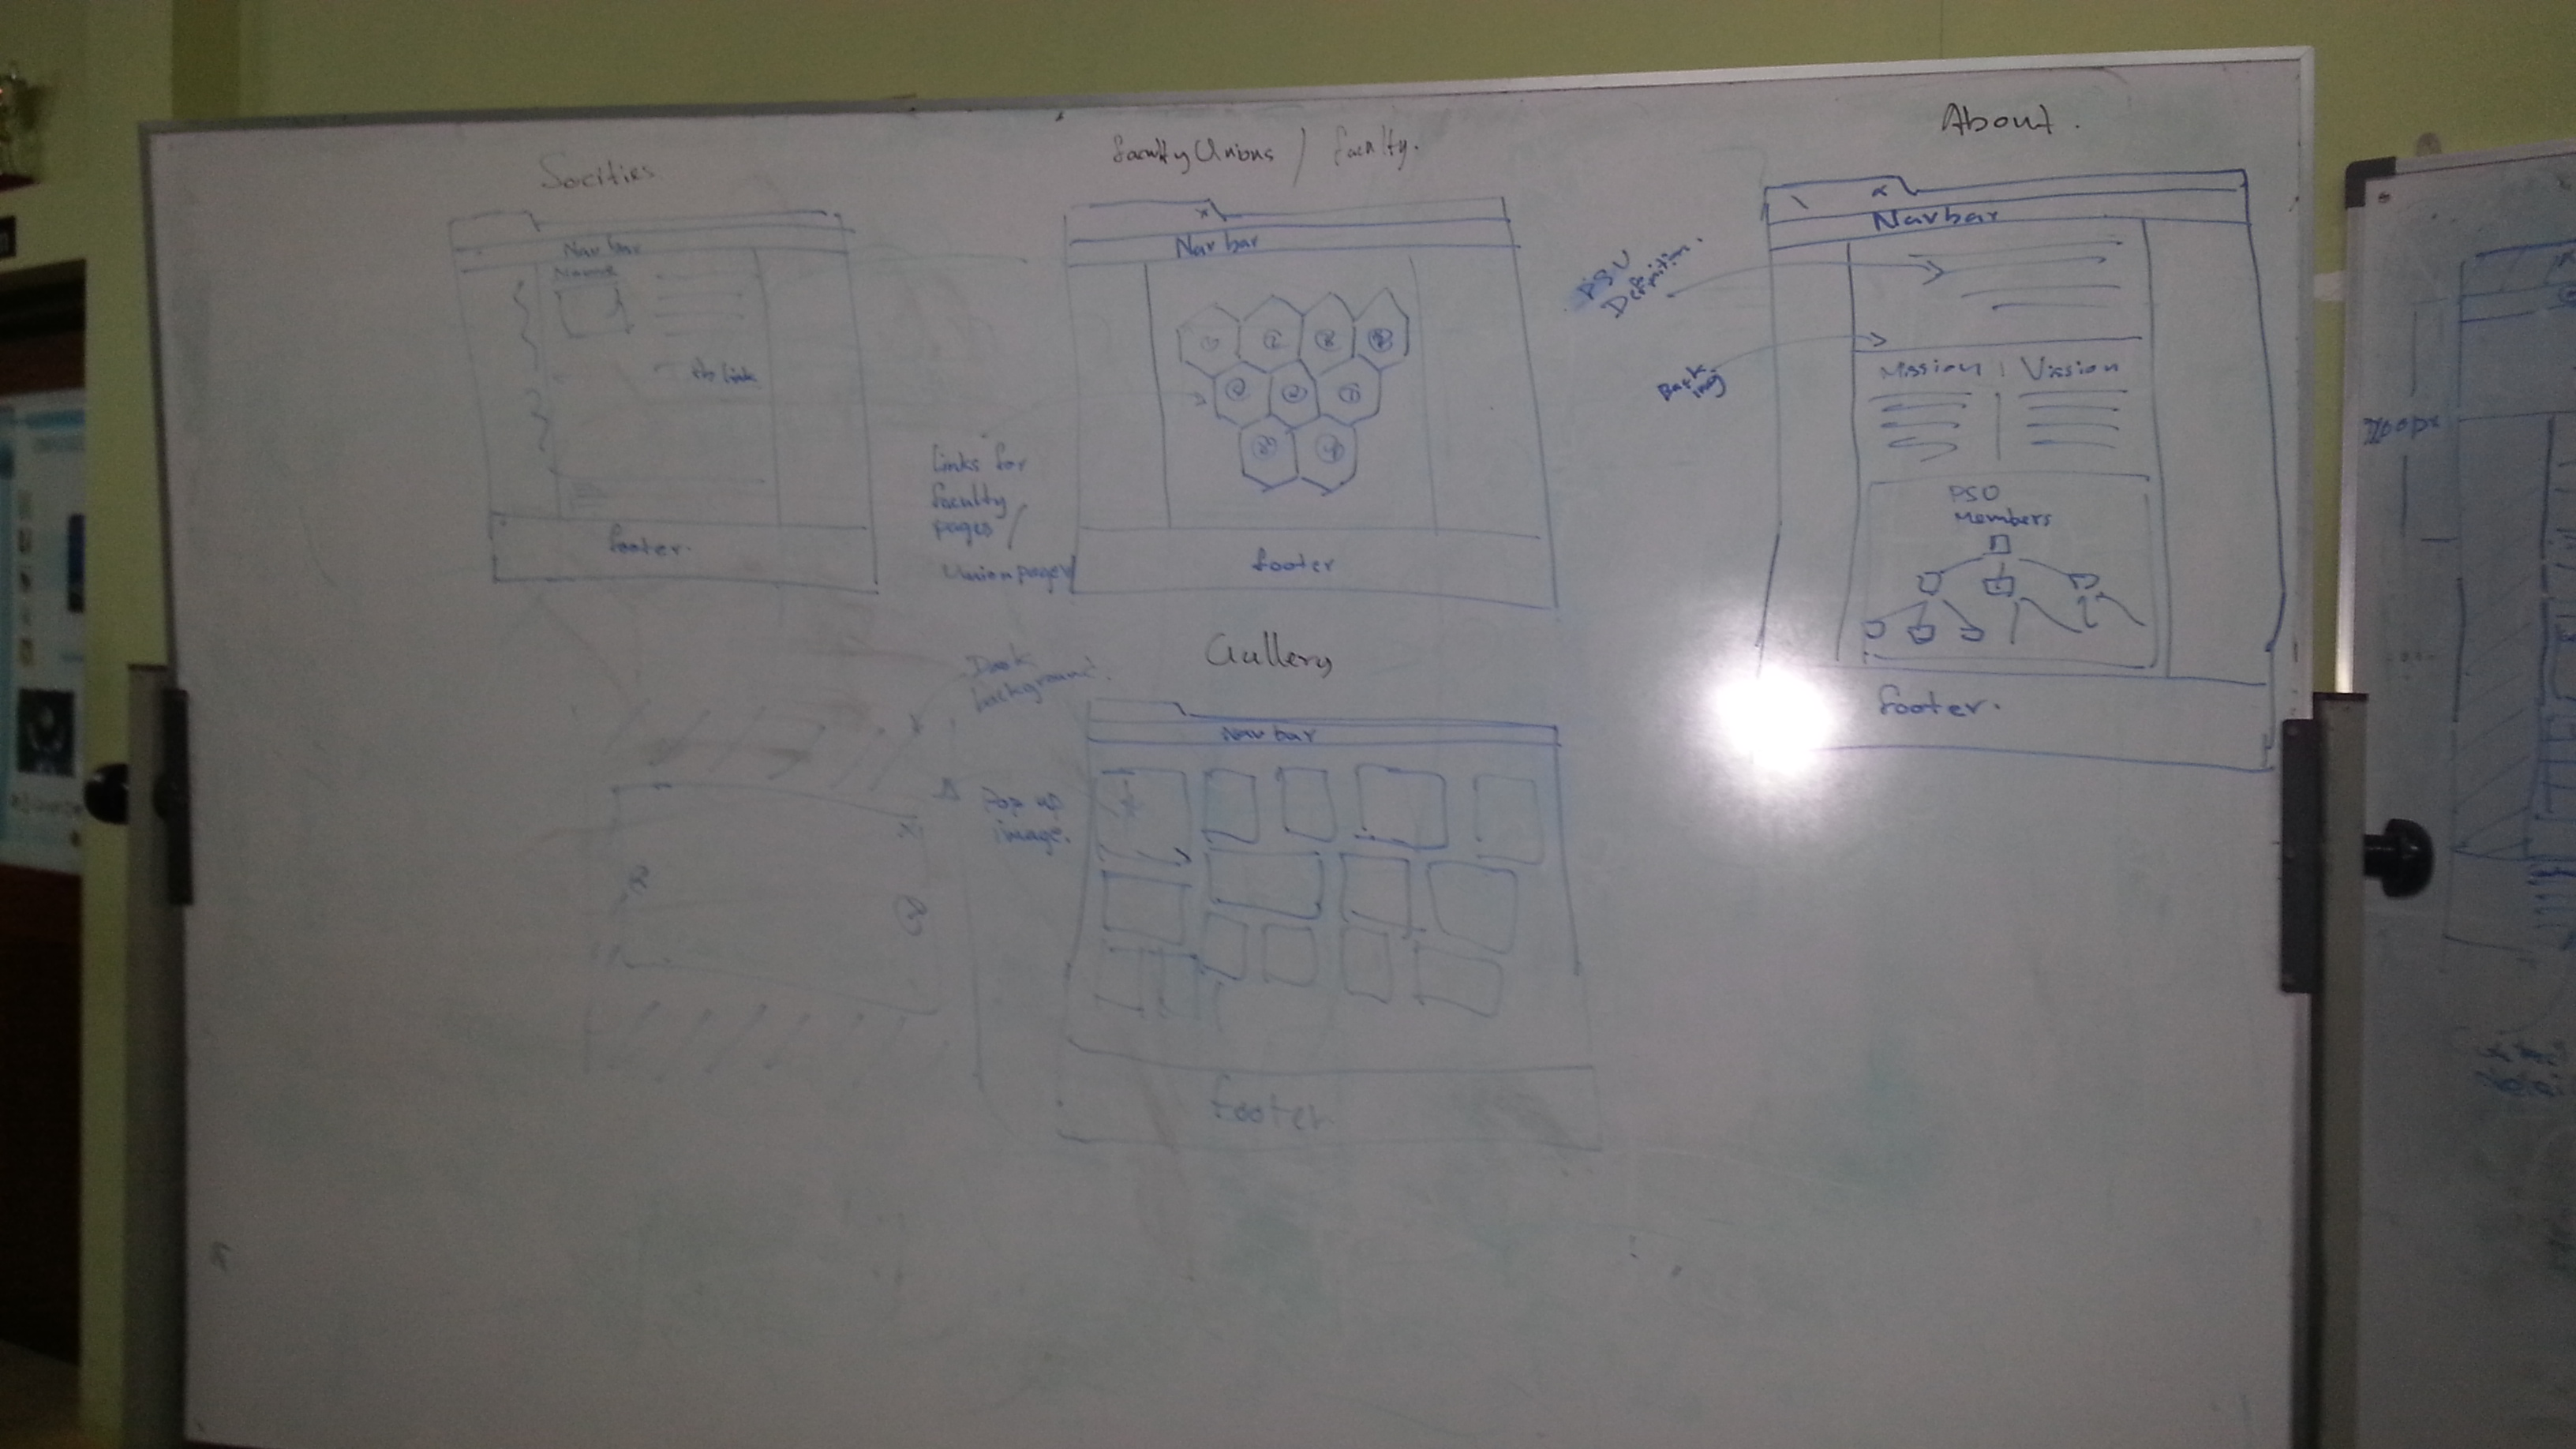 Socities
Nav bar
Name
fb link
footer.
faculty Unions / faculty.
Nav bar
Links for
faculty
pages /
Union pages
footer
About.
Navbar
PSU
Definition.
Mission
Vission
PSU
Members
footer.
Gallery
Dark
background.
Nav bar
Pop up
image.
footer